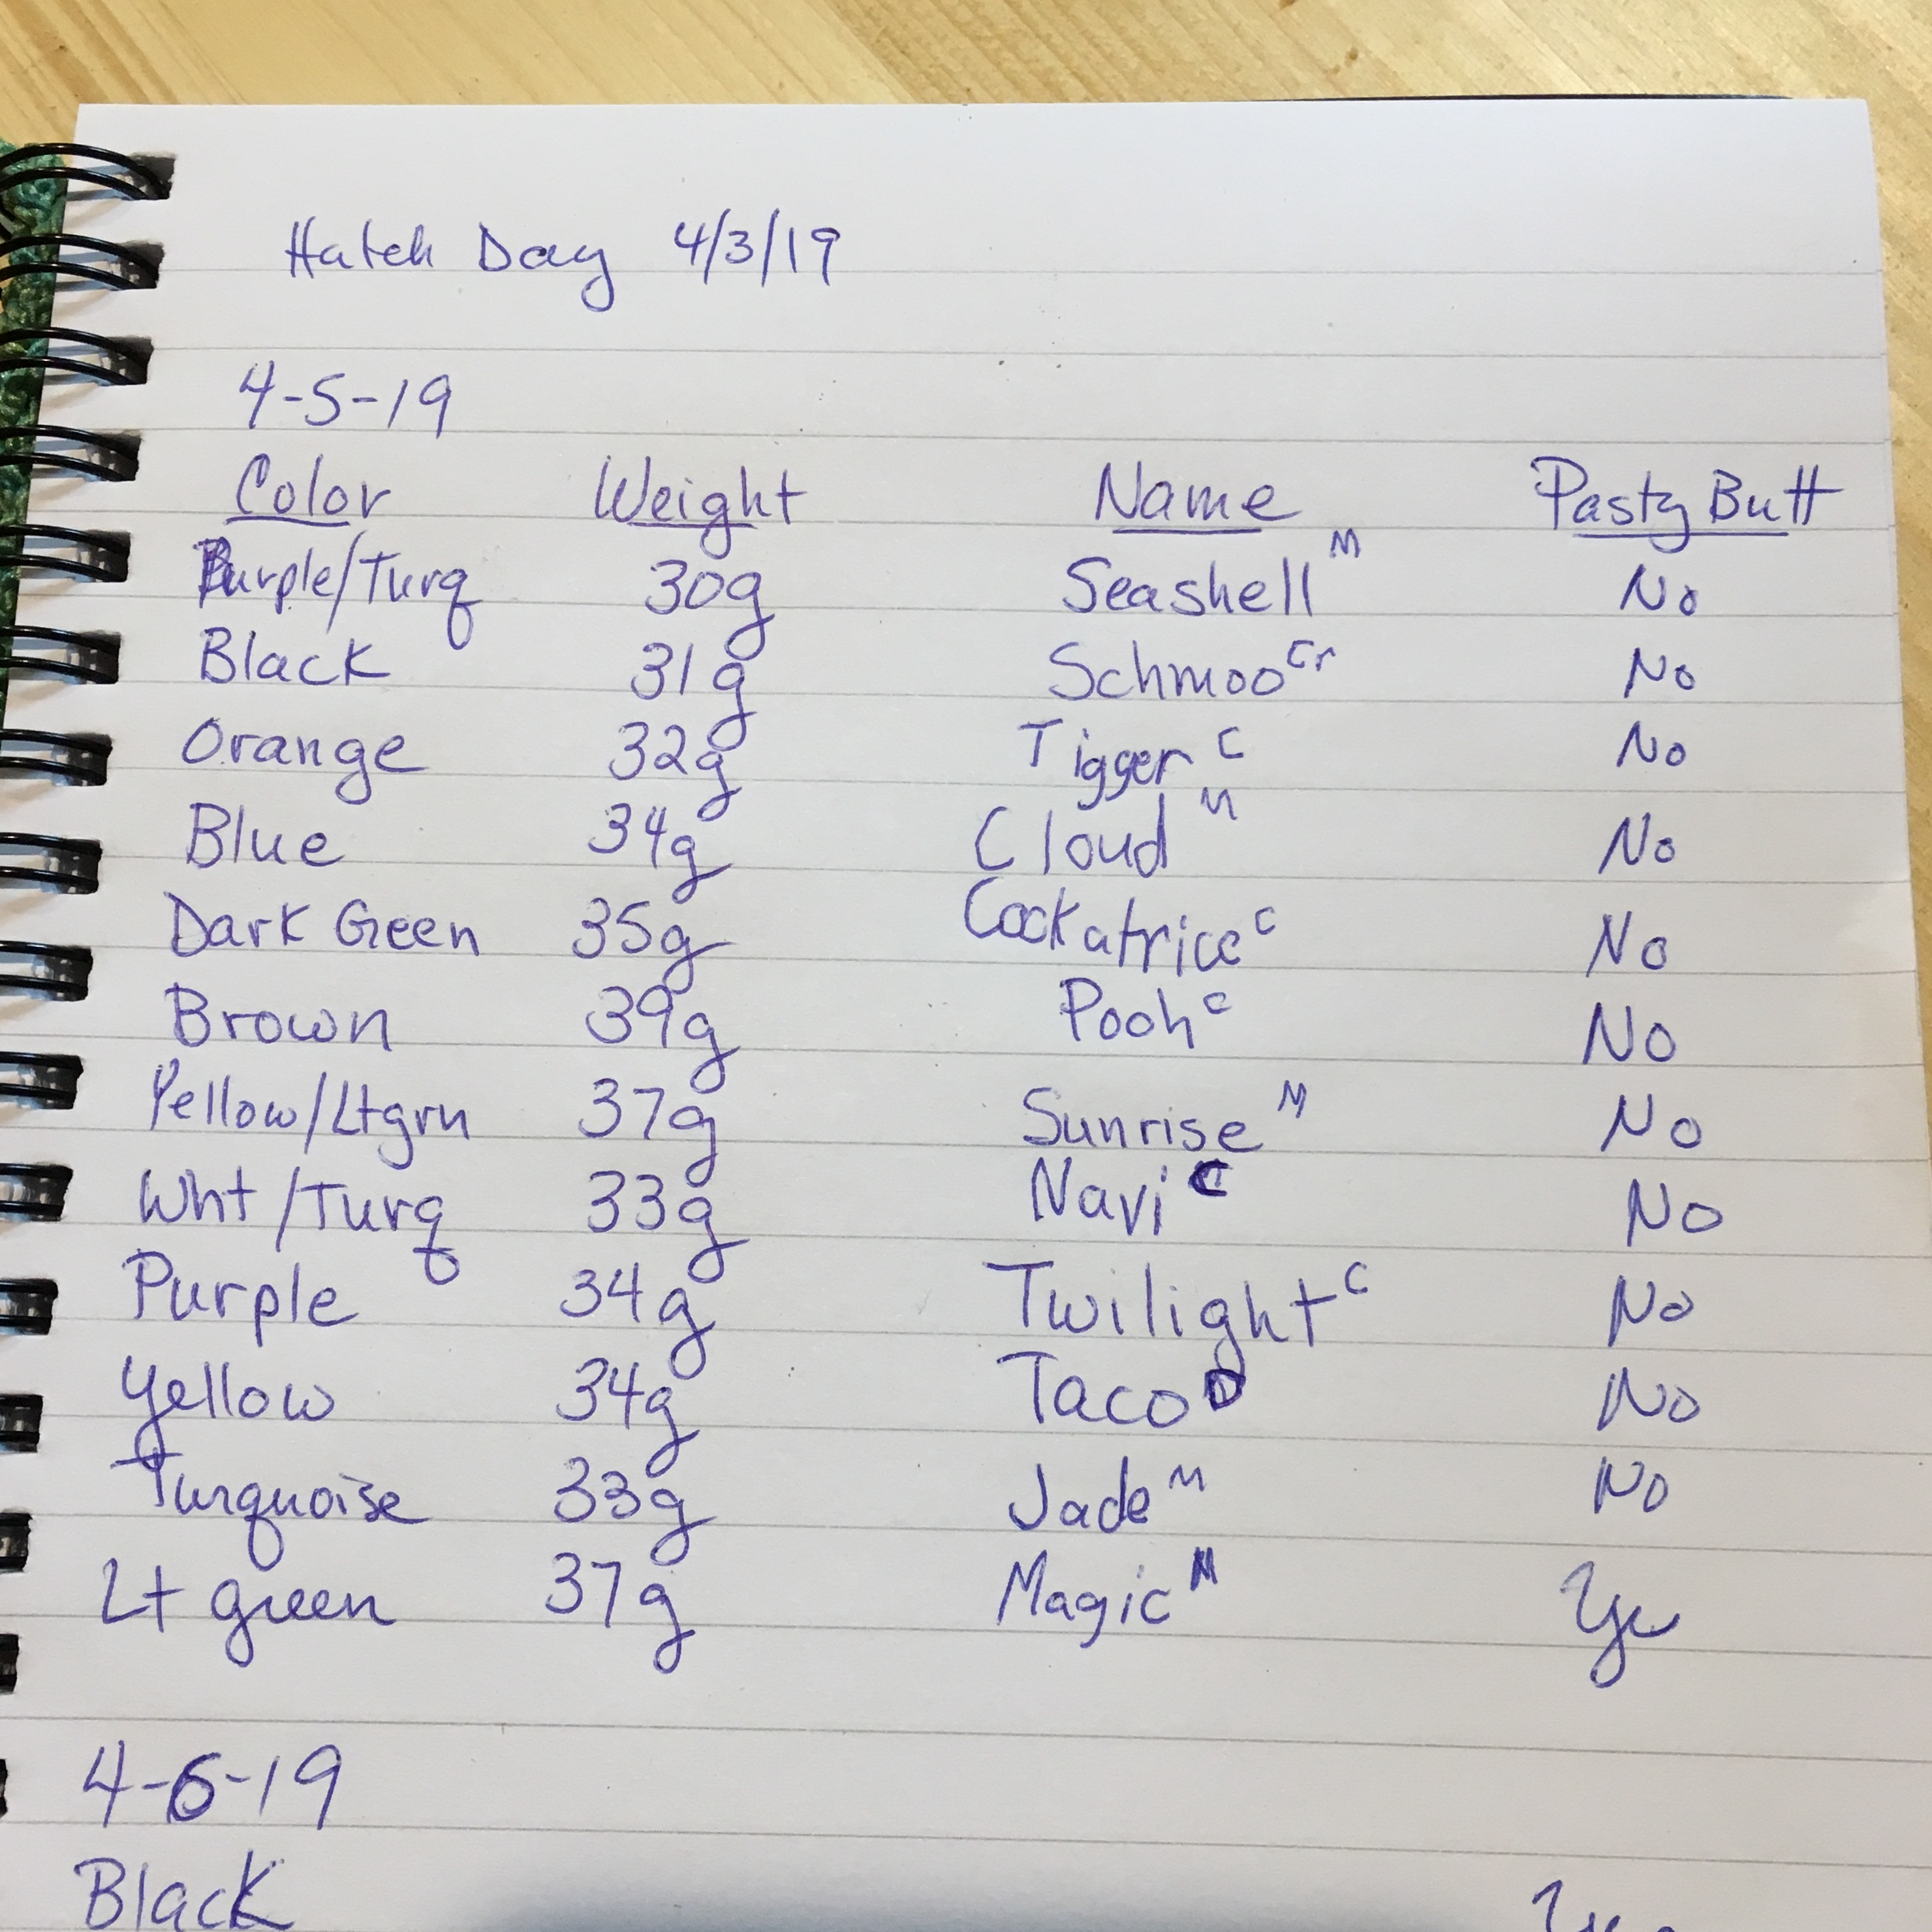 Hatch Day 4/3/19
4-5-19
Color Weight Name Pasty Butt
Purple/Turq 30g Seashell M No
Black 31g Schmoo Cr No
Orange 32g Tigger C No
Blue 34g Cloud M No
Dark Green 35g Cockatrice C No
Brown 39g Pooh C No
Yellow/Ltgrn 37g Sunrise M No
Wht/Turq 33g Navi C No
Purple 34g Twilight C No
Yellow 34g Taco D No
Turquoise 33g Jade M No
Lt green 37g Magic M Ye
4-6-19
Black